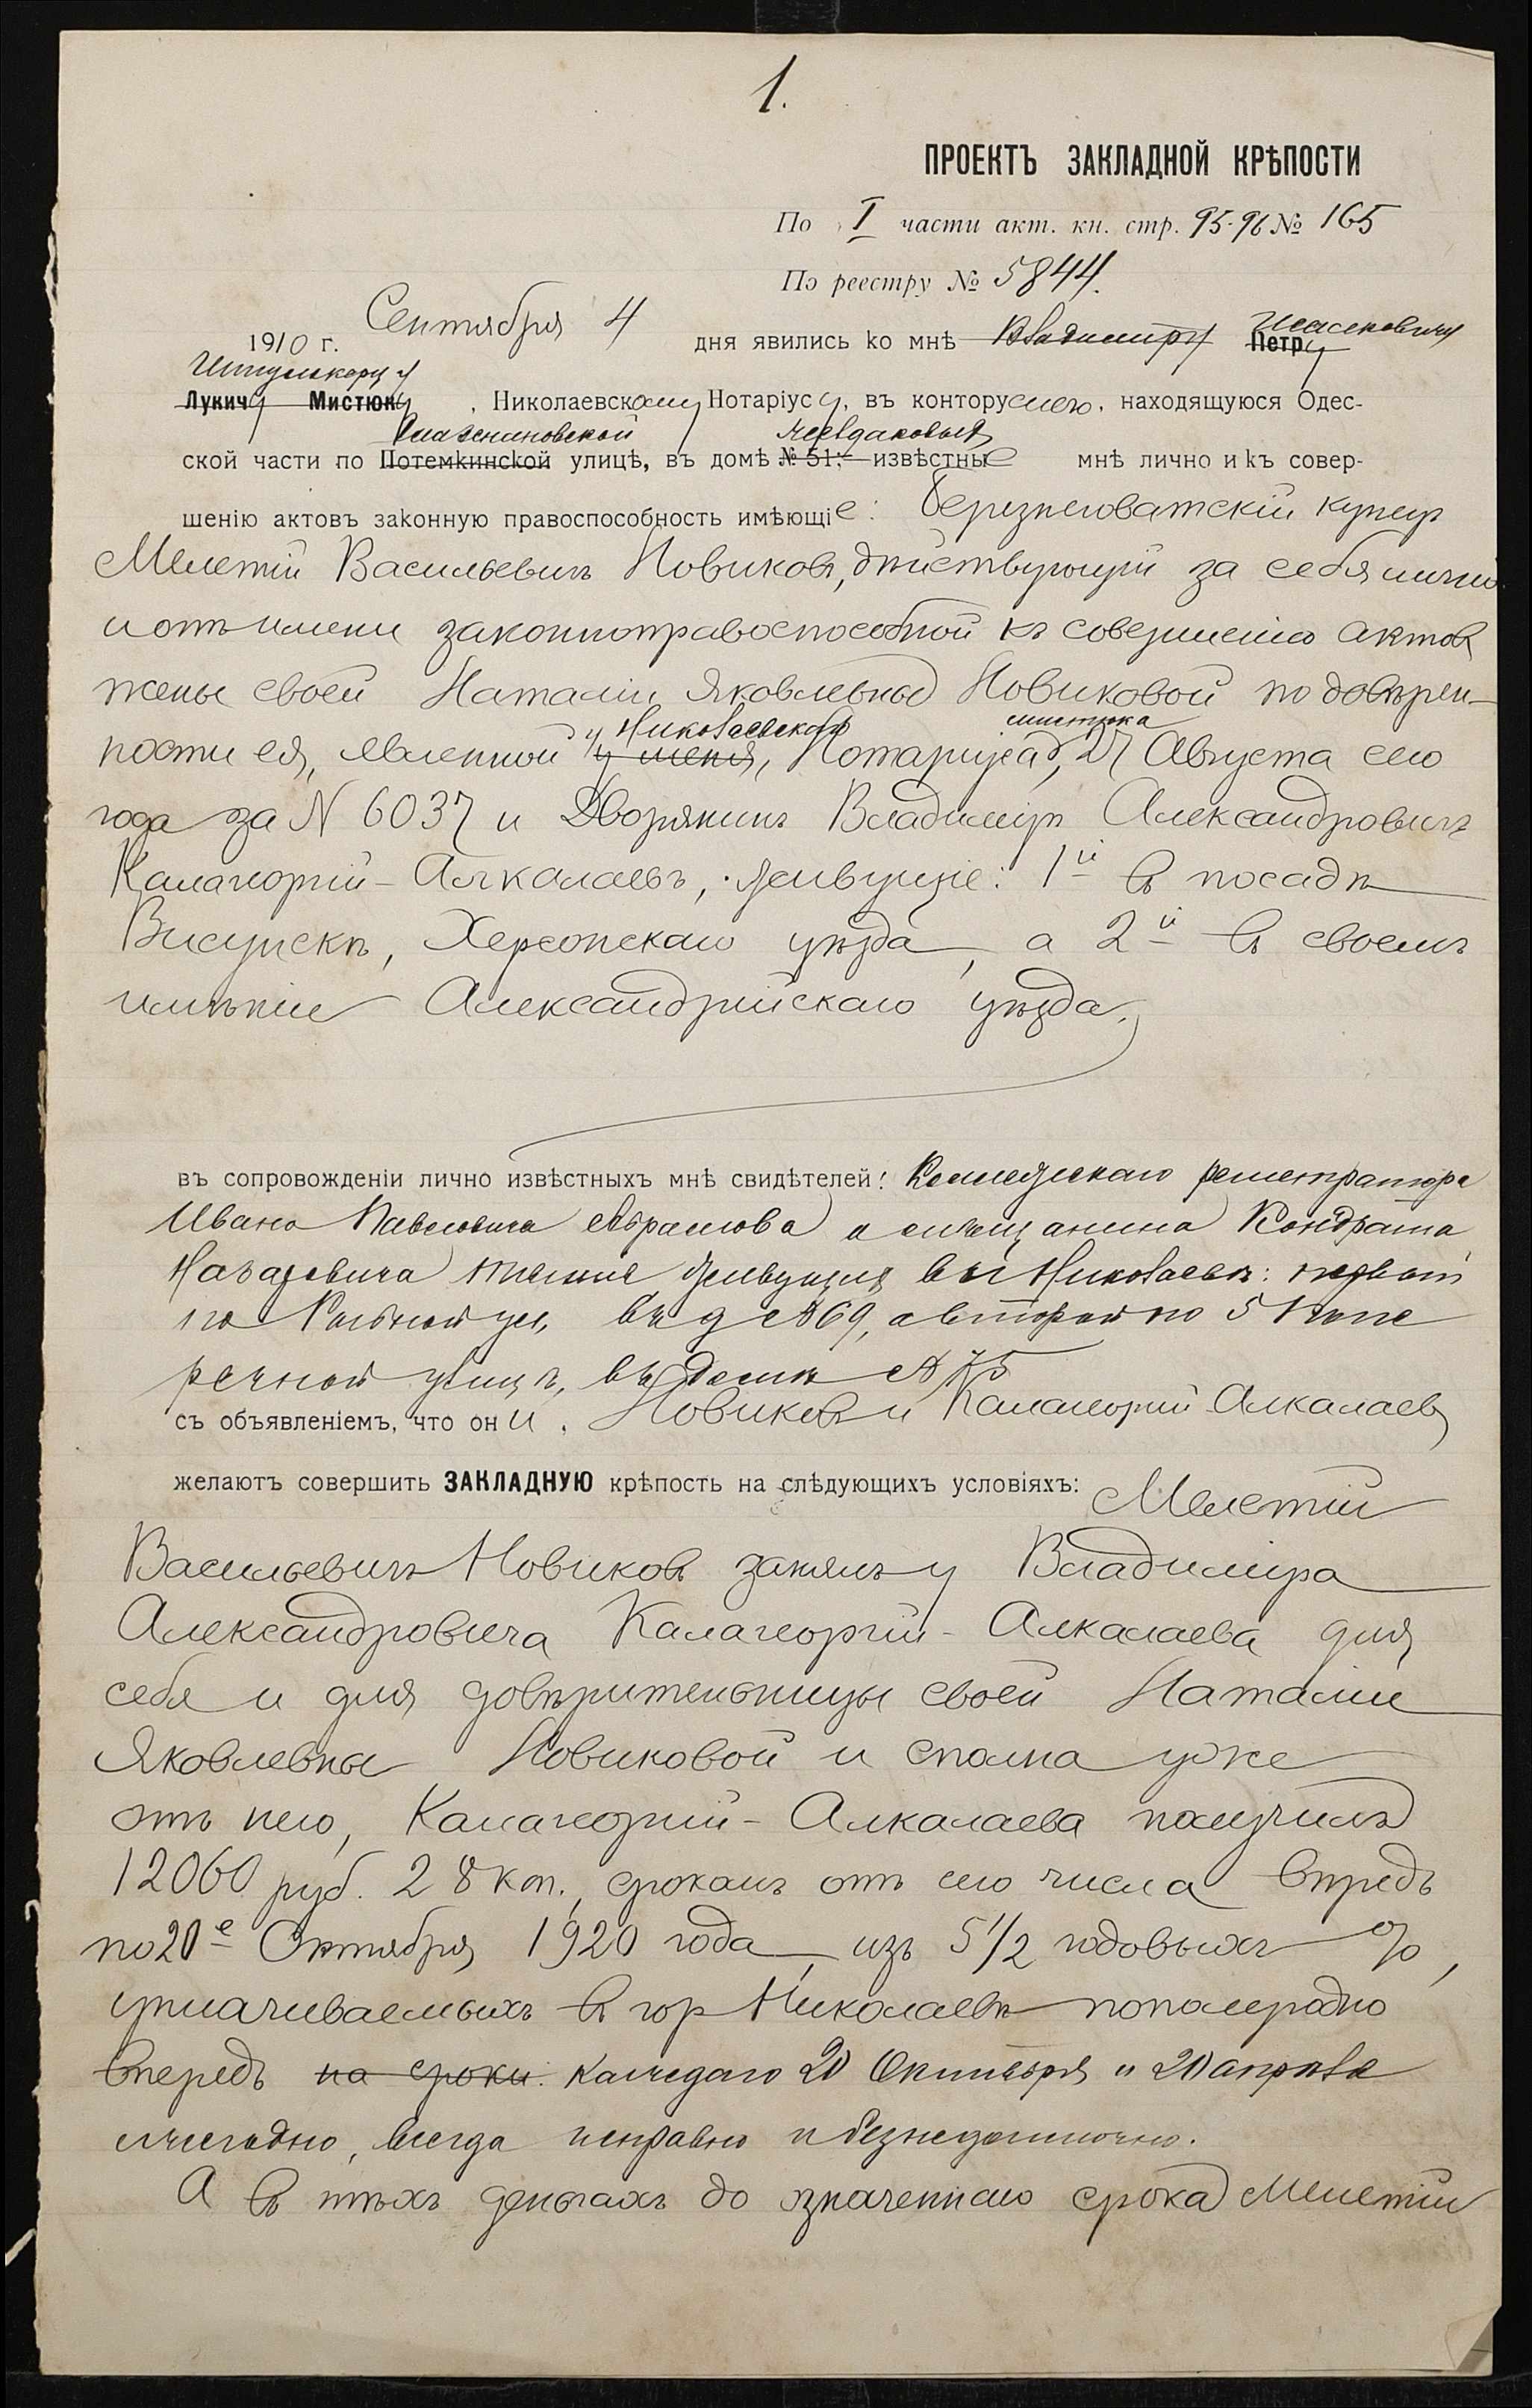 1.
ПРОЕКТЪ ЗАКЛАДНОЙ КРѢПОСТИ
По I части акт. кн. стр. 95-96 № 165
По реестру № 5844.
1910 г. Сентября 4 дня явились ко мнѣ Владиміру Петру
Лукичу Мистюку, Николаевскому Нотаріусу, въ контору мою, находящуюся Одес-
ской части по Потемкинской улицѣ, въ домѣ № 51; извѣстные мнѣ лично и къ совер-
шенію актовъ законную правоспособность имѣющіе: Березнеговатскій купецъ
Мелетій Васильевичъ Новиковъ, дѣйствующій за себя лично
и отъ имени законноправоспособной къ совершенію актовъ
жены своей Наталіи Яковлевны Новиковой по довѣрен-
Николаевскаго Мистюка
ности ея, явленной у меня, Нотаріуса, 27 Августа сего
года за N 6037 и Дворянинъ Владиміръ Александровичъ
Калагеоргій-Алкалаевъ, живущіе: 1й въ посадѣ
Висунскѣ, Херсонскаго уѣзда, а 2й въ своемъ
имѣніи Александрійскаго уѣзда.
въ сопровожденіи лично извѣстныхъ мнѣ свидѣтелей: Коллежскаго регистратора
Ивана Павловича Абрамова и мѣщанина Кондрата
Назаровича живущихъ въ г Николаевѣ: первый
по ул, въ д № 69, а второй по 5 Попе
речной улицѣ, въ домѣ № 75
съ объявленіемъ, что они, Новиковъ и Калагеоргій Алкалаевъ
желаютъ совершить ЗАКЛАДНУЮ крѣпость на слѣдующихъ условіяхъ: Мелетій
Васильевичъ Новиковъ занялъ у Владиміра
Александровича Калагеоргій-Алкалаева для
себя и для довѣрительницы своей Наталіи
Яковлевны Новиковой и сполна уже
отъ него, Калагеоргій-Алкалаева получилъ
12060 руб. 28 коп., срокомъ отъ сего числа впредь
по 20е Октября 1920 года, изъ 5 1/2 годовыхъ %,
уплачиваемыхъ въ гор Николаевѣ пополугодно
впередъ на сроки: каждаго 20 Октября и 20 апрѣля
ежегодно, всегда исправно и безнедоимочно.
А въ тѣхъ деньгахъ до означеннаго срока Мелетій